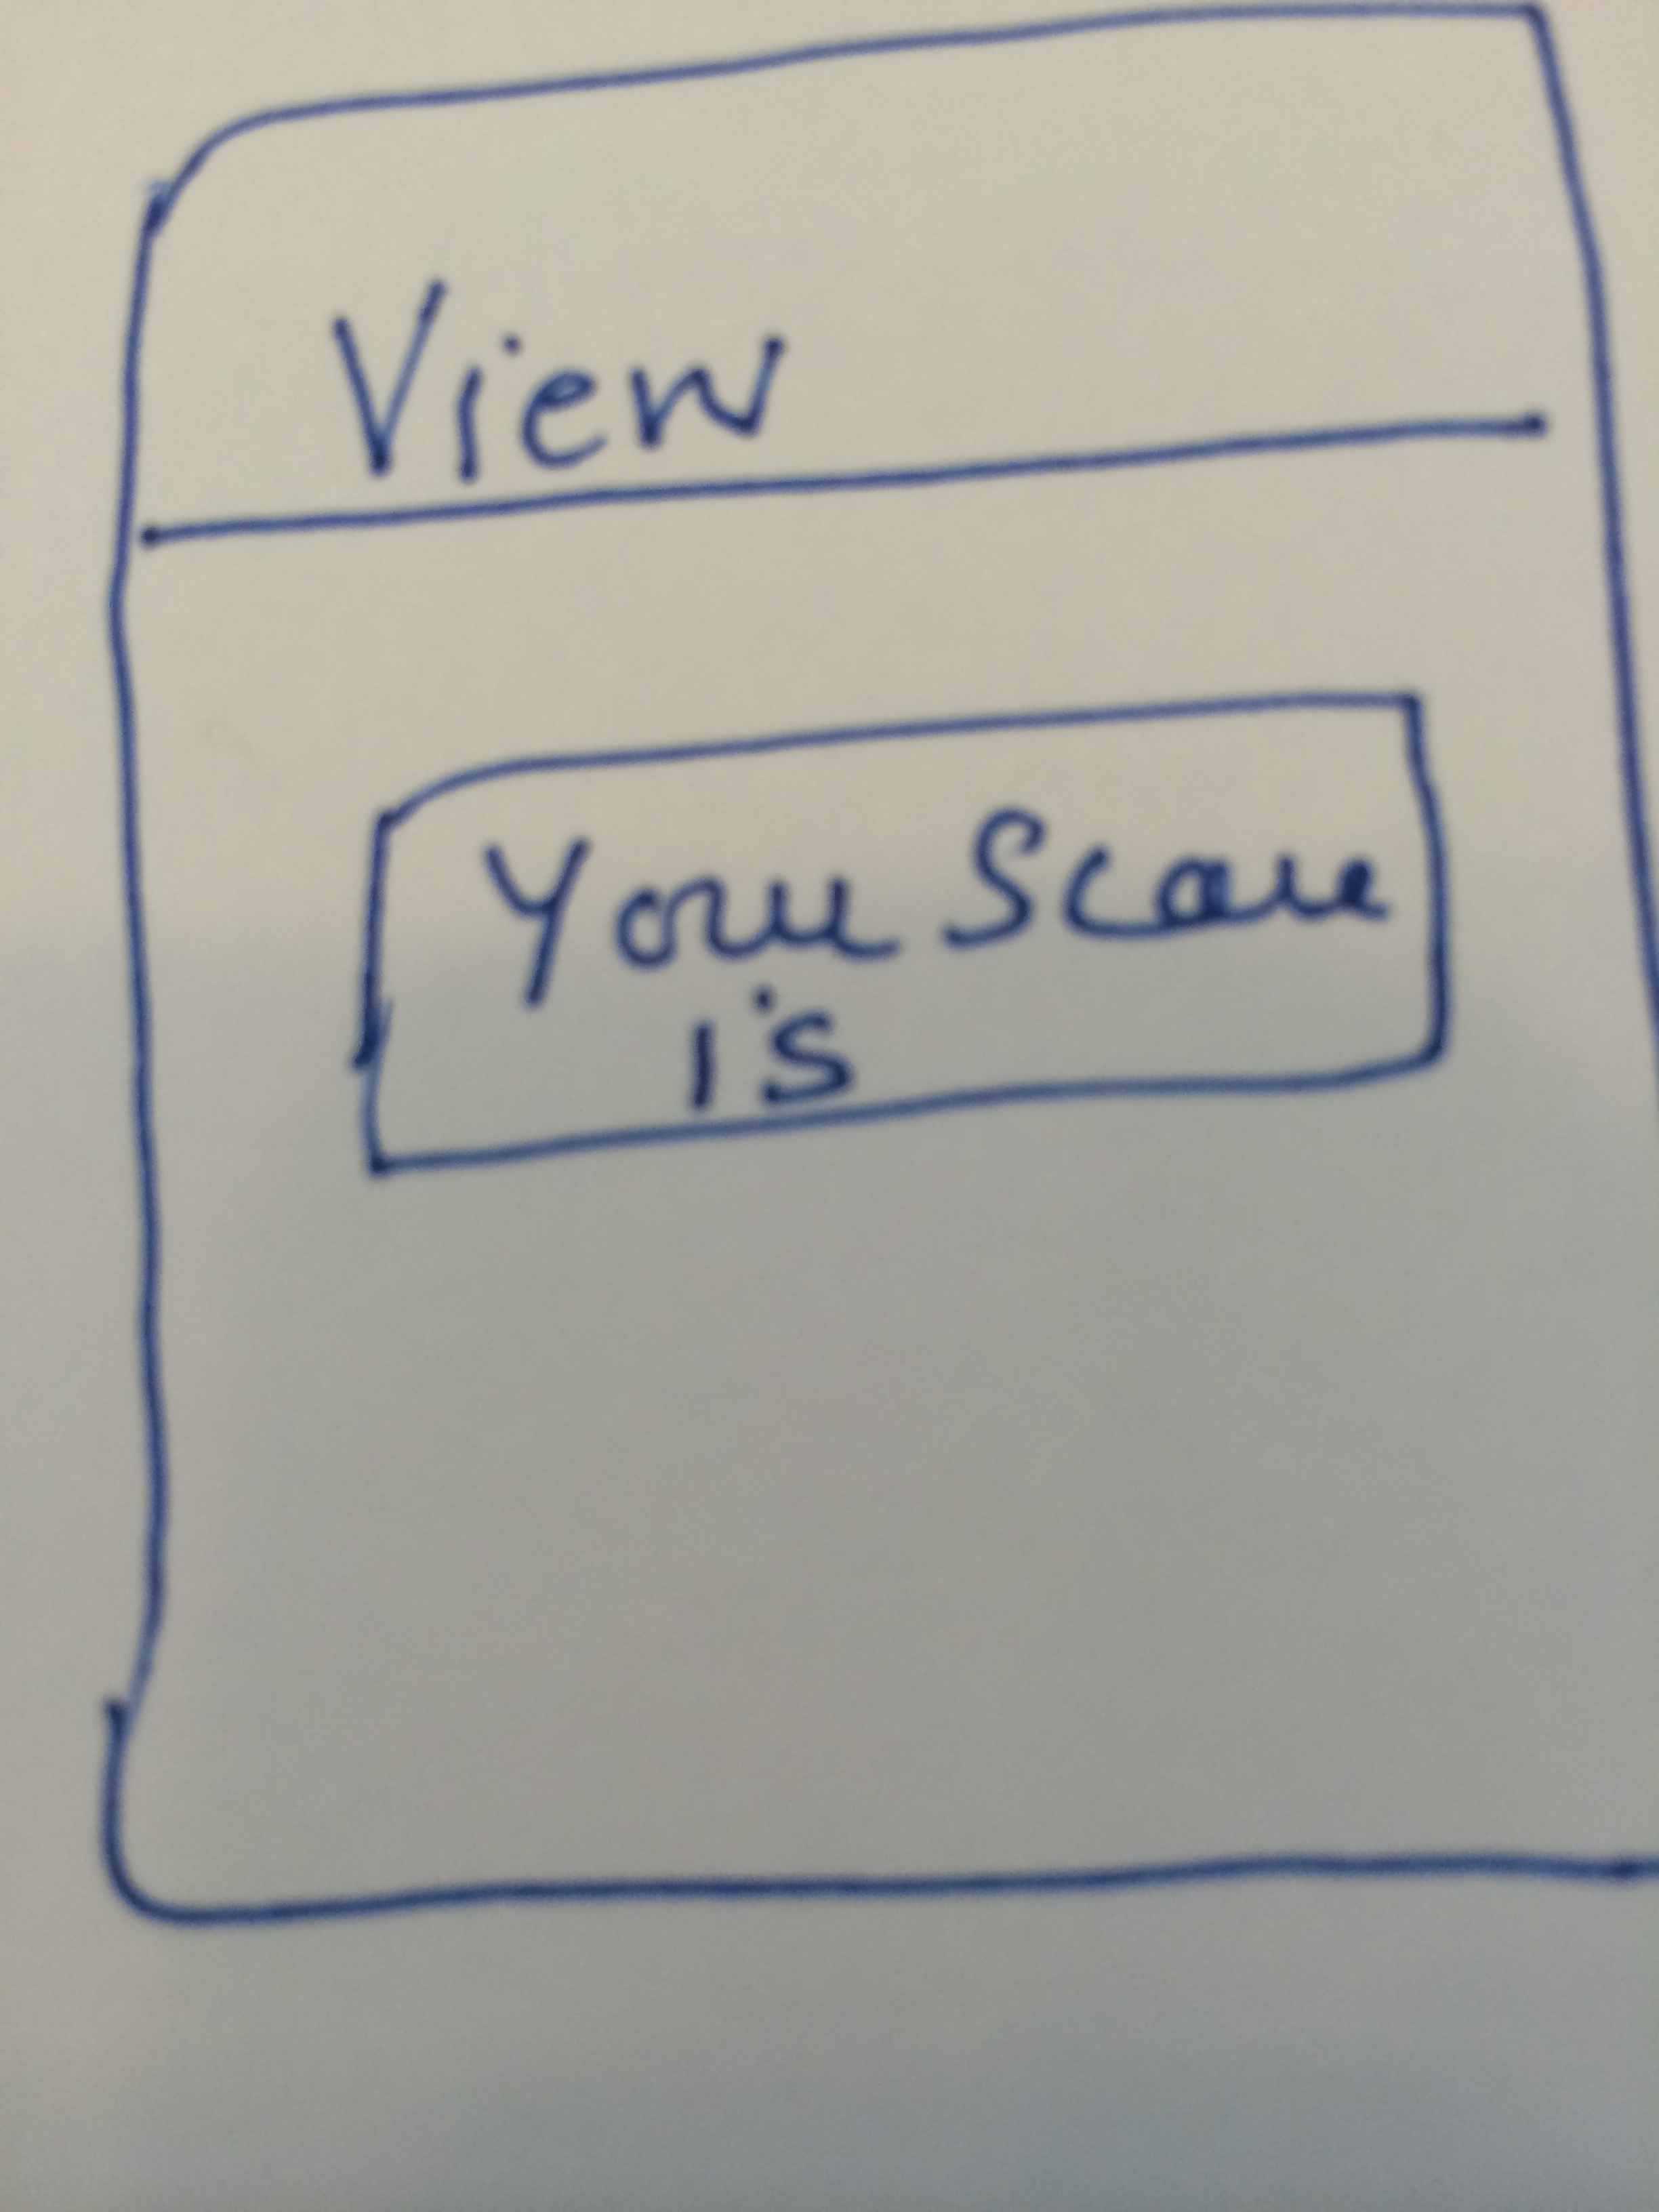 View
Your Score
is